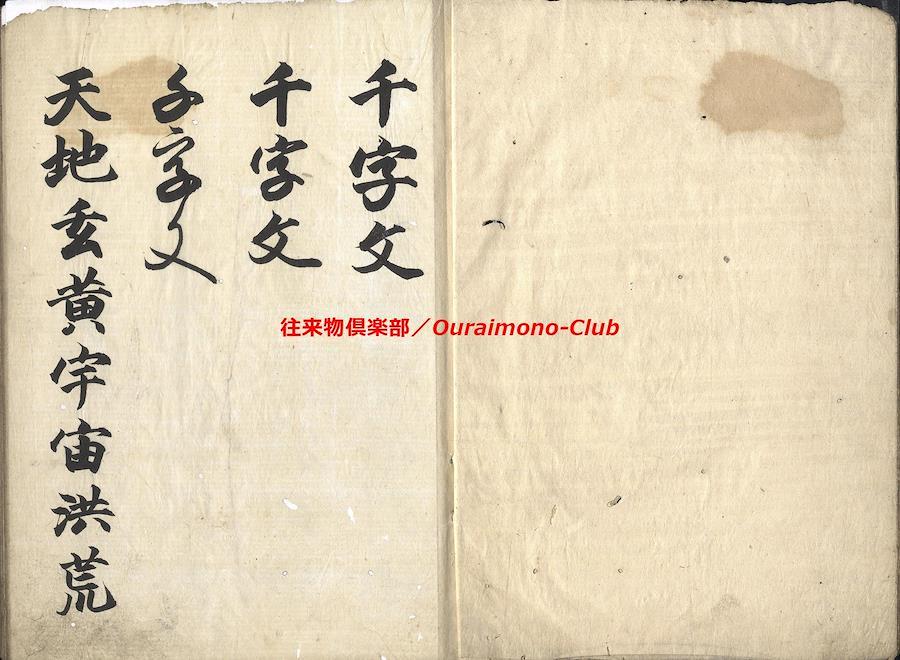 千字文
千字文
千字文
天地玄黄宇宙洪荒
往来物倶楽部／Ouraimono-Club